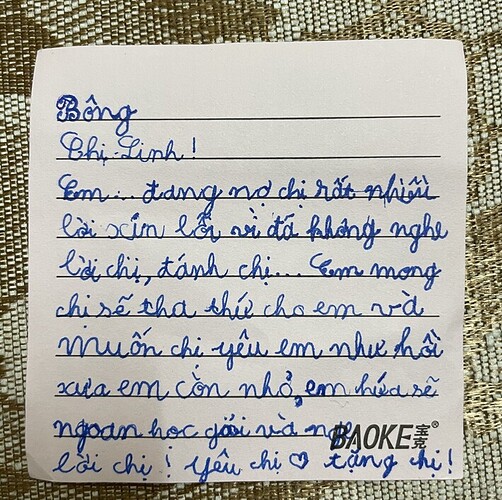 Bông
Chị Linh!
Em... đang nợ chị rất nhiều
lời xin lỗi vì đã không nghe
lời chị, đánh chị... Em mong
chị sẽ tha thứ cho em và
muốn chị yêu em như hồi
xưa em còn nhỏ, em hứa sẽ
ngoan học giỏi và
BAOKE宝克®
lời chị! Yêu chị ♡ tặng chị!